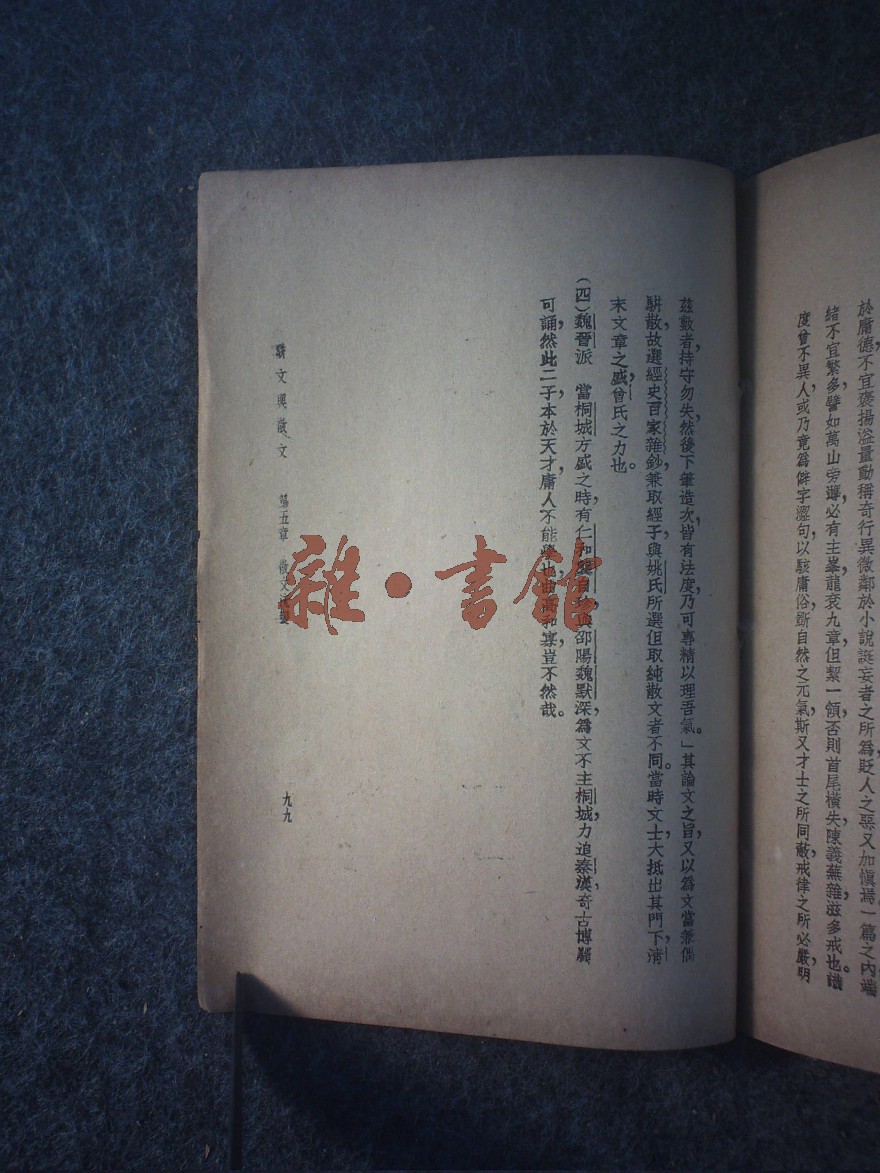 於庸德不宜褒揚溢量動稱奇行異徵鄰於小說誕妄者之所為貶人之惡又加愼焉一篇之內端
緒不宜繁多譬如萬山旁薄必有主峯龍袞九章但絜一領否則首尾橫失陳義蕪雜滋多戒也識
度曾不異人或乃竟為僻字澀句以駭庸俗斲自然之元氣斯又才士之所同蔽戒律之所必嚴明
茲數者持守勿失然後下筆造次皆有法度乃可專精以理吾氣。」其論文之旨又以為文當兼偶
駢散故選經史百家雜鈔兼取經子與姚氏所選但取純散文者不同。當時文士大抵出其門下清
末文章之盛曾氏之力也。
(四)魏晉派　當桐城方盛之時有仁和龔自珍與邵陽魏默深為文不主桐城力追秦漢奇古博麗
可誦然此二子本於天才庸人不能學也曲高和寡豈不然哉。
駢文與散文　第五章　散文
九九
雜·書館